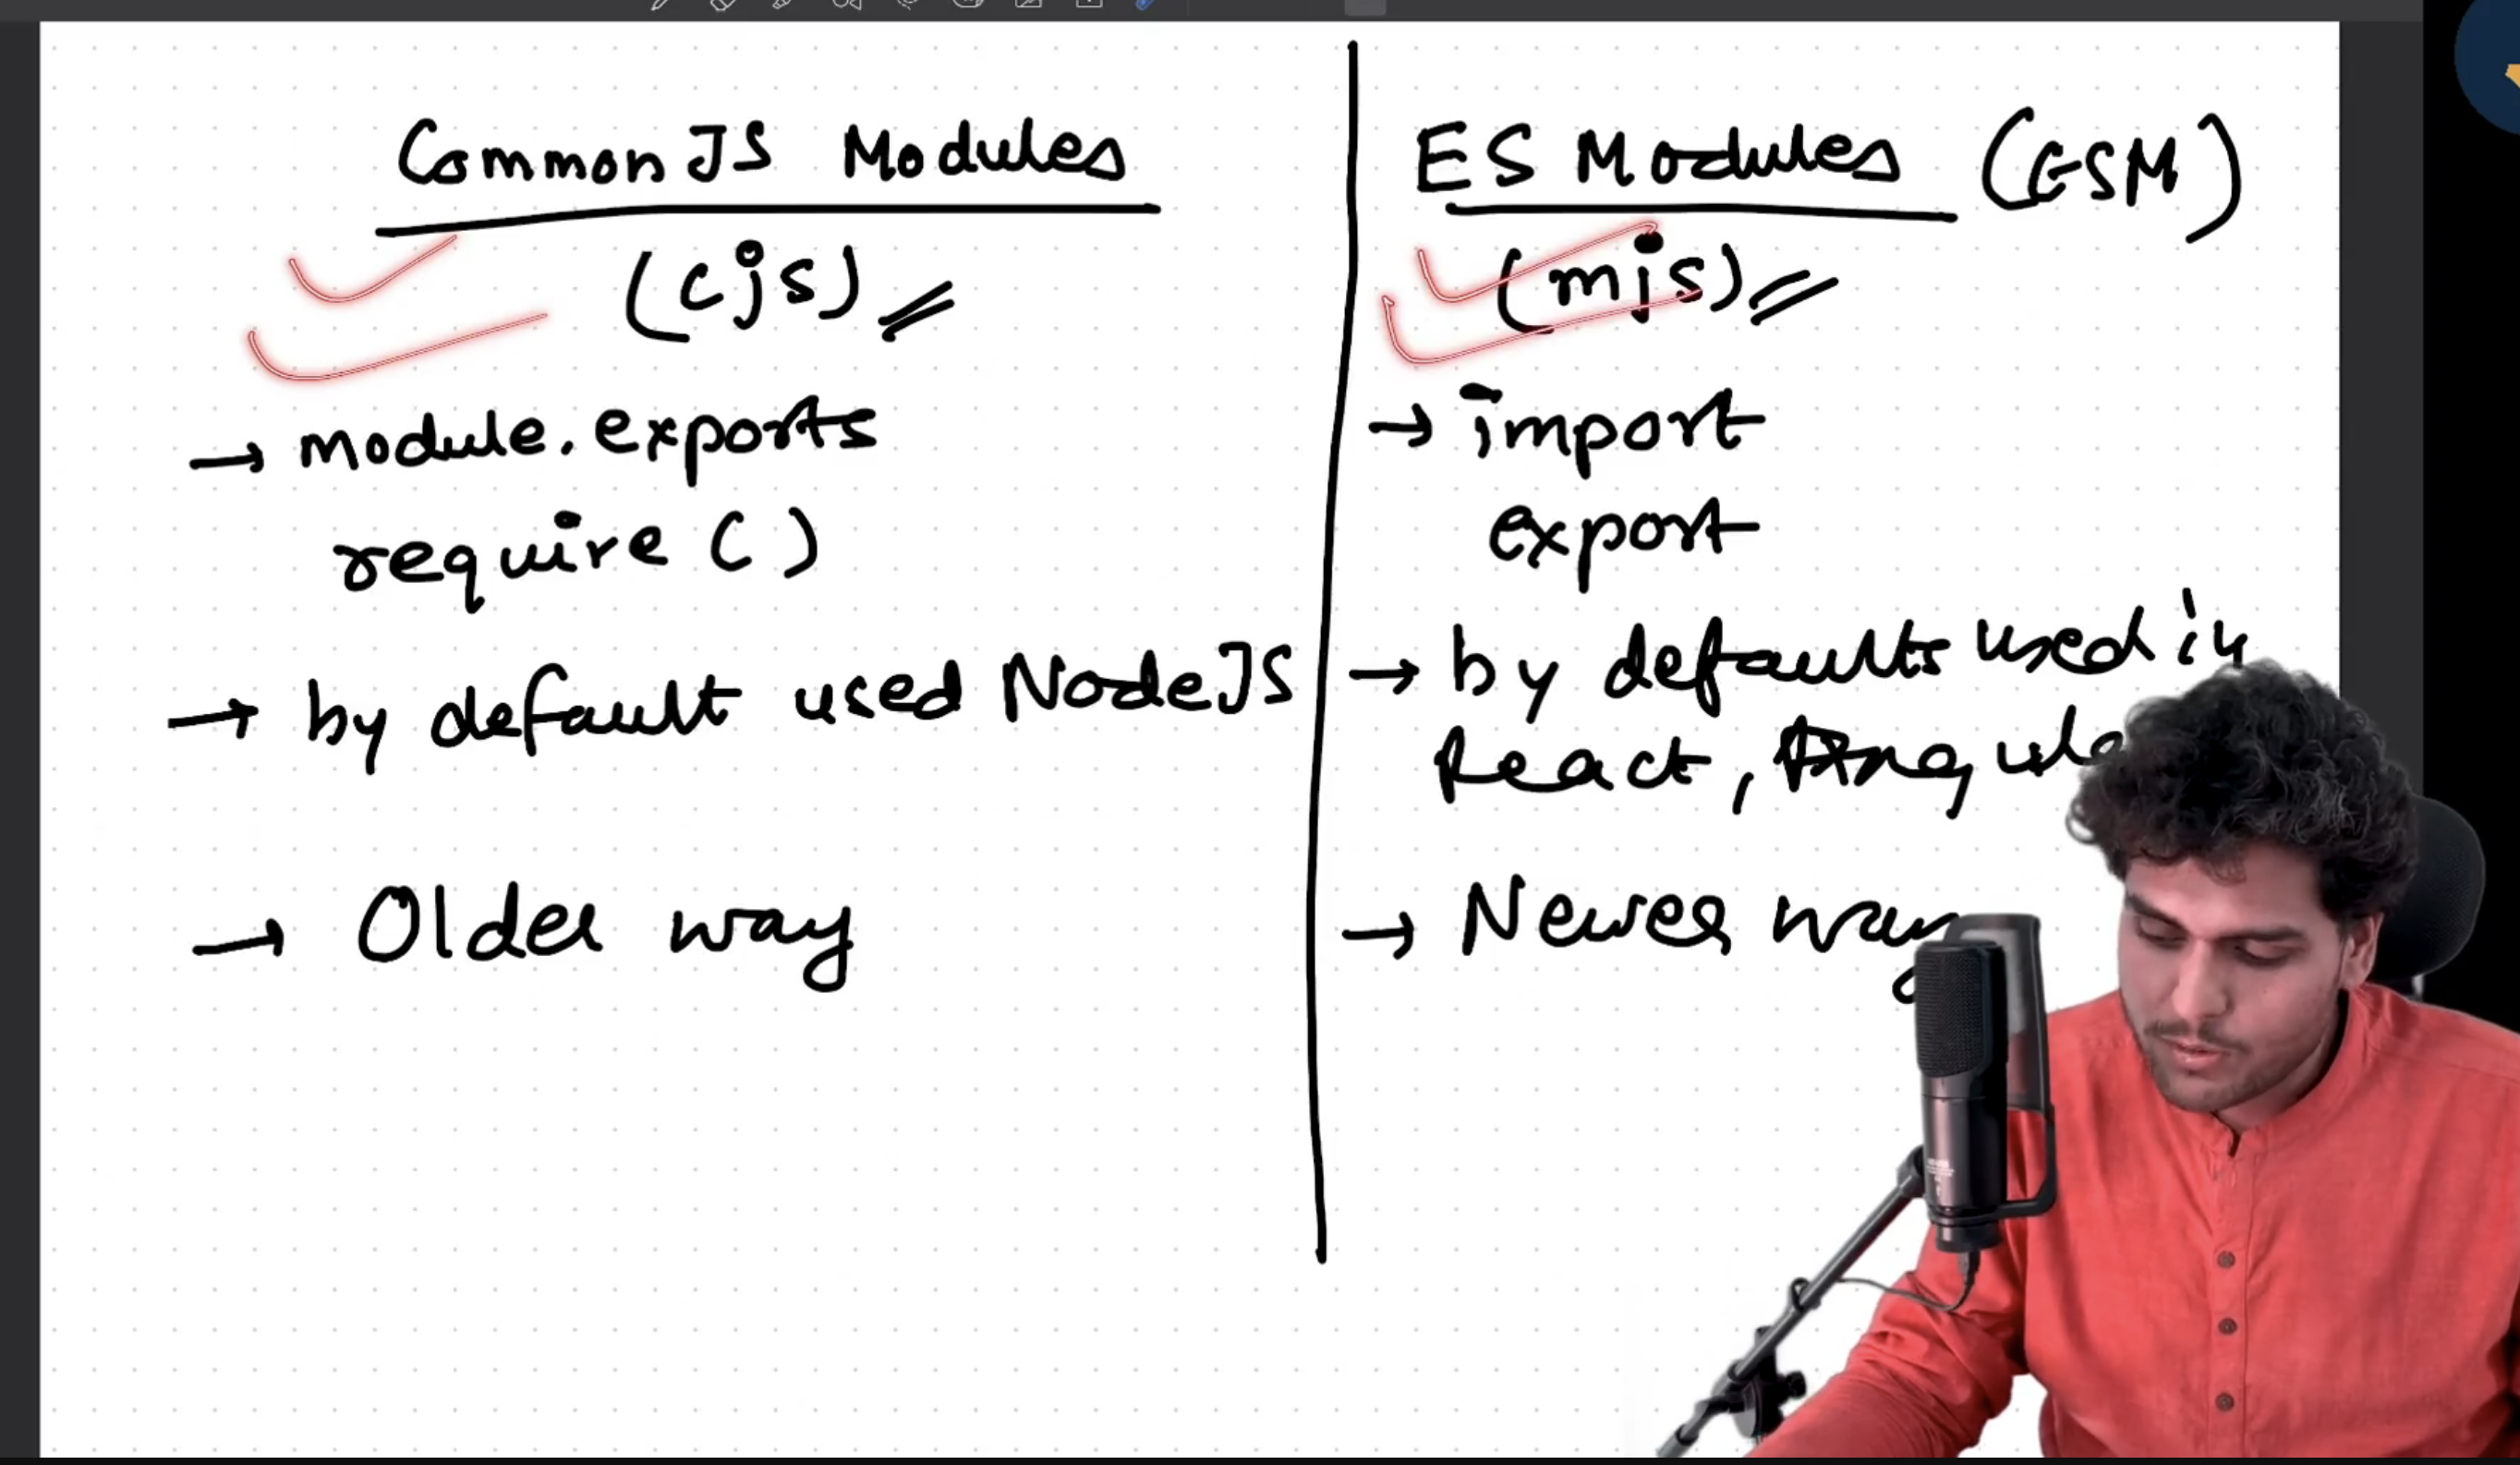 CommonJS Modules
(cjs)
→ module.exports
require ( )
→ by default used NodeJS
→ Older way
ES Modules (ESM)
(mjs)
→ import
export
→ by defaults used in
React,
→ Newer way